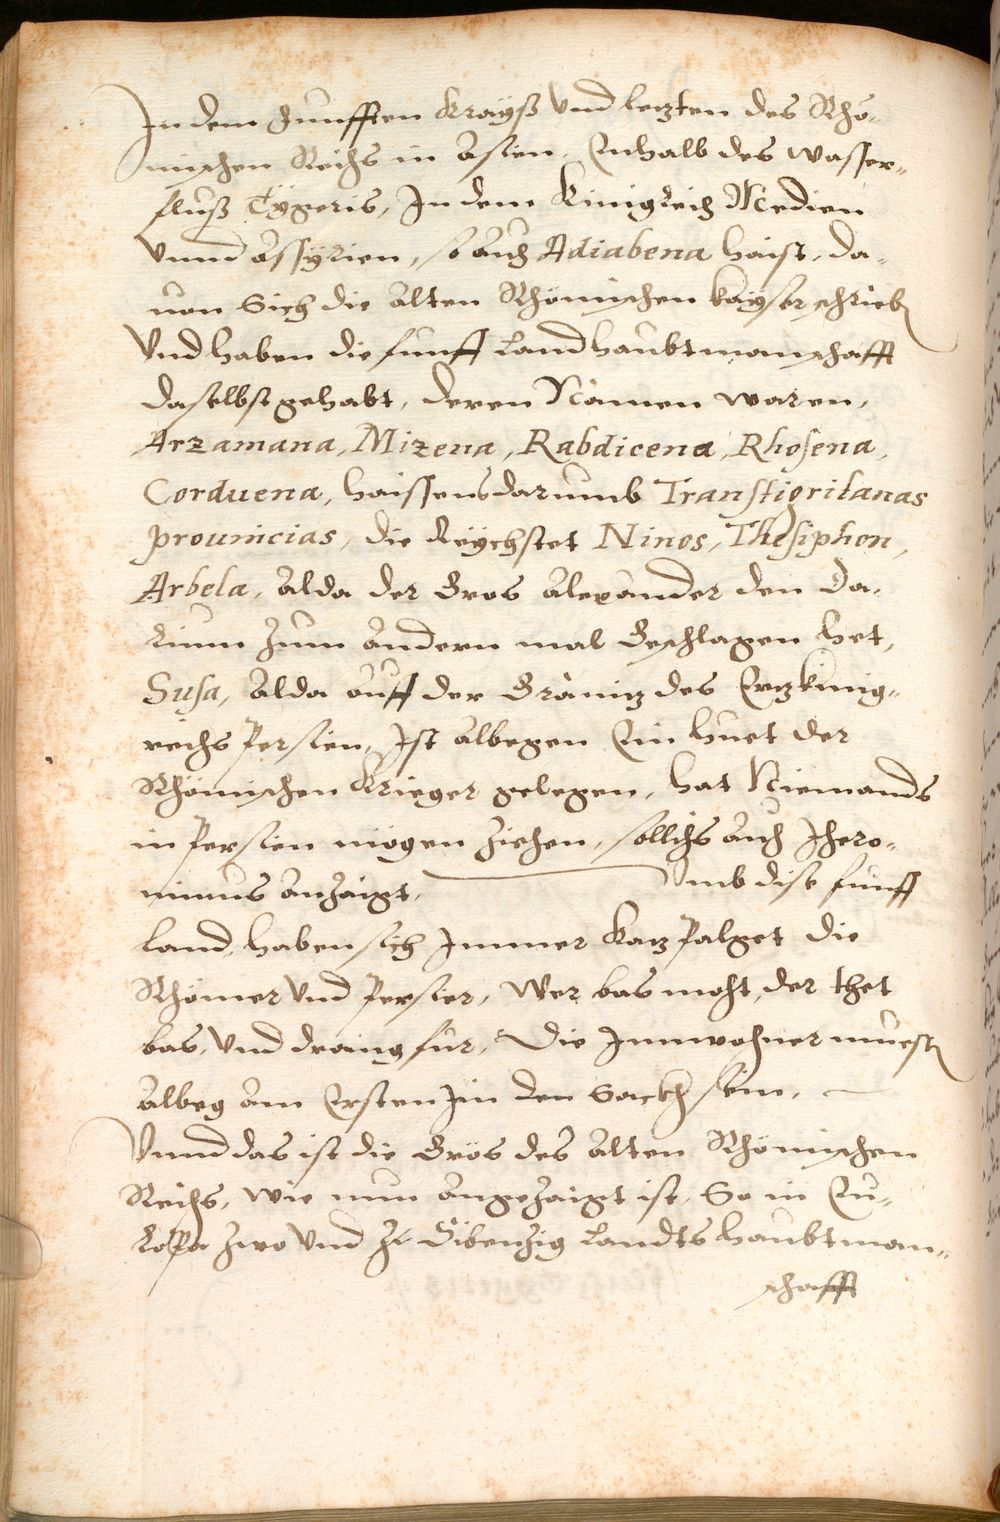 In dem funfften Krayß vnd letzten des Rhö-
mischen Reichs in Asien, Enhalb des wasser-
fluß Tÿgeris, In dem Kinigreich Medien
vnnd Assÿrien, so auch Adiabena haist, da-
uon Sich die alten Rhömischen kaÿser schrieb
Vnd haben die funff Landhaubtmanschafft
daselbst gehabt, deren Namen waren,
Arzamana, Mizena, Rabdicena, Rhosena,
Corduena, haissens darumb Transtigritanas
prouincias, die Reÿchstet Ninos, Thesiphon,
Arbela, alda der Gros Alexander den Da-
rium zum andern mal Geschlagen het,
Susa, alda auff der Gränitz des Ertzkinig-
reichs Persien, Ist albegen Ein huet der
Rhömischen Krieger gelegen, hat Niemands
in Persien mögen ziehen, sollichs auch Ihero-
nimus anzaigt, Vmb dise funff
land, haben sich Immer Katzpalget die
Rhömer vnd Persier, Wer bas moht, der thet
bas, vnd drang für, Die Innwohner muest
albeg am Ersten In den Sackh sein,
Vnnd das ist die Grös des alten Rhömischen
Reichs, wie nun angezaigt ist, So in Eu-
ropa zwo vnd Sibenzig Landtshaubtman-
schafft